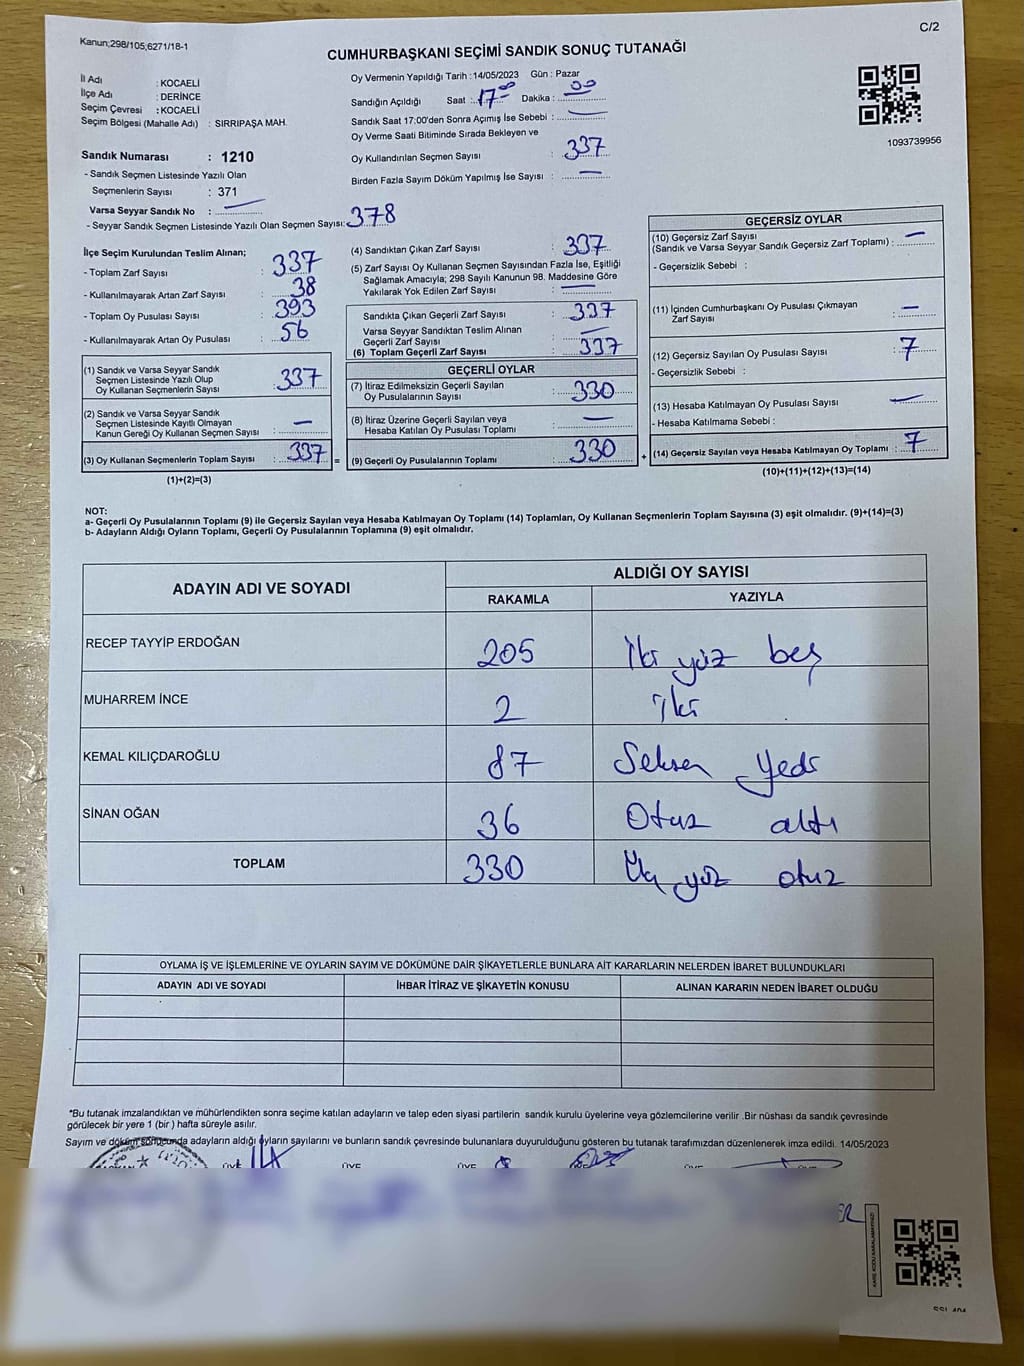 Kanun;298/105;6271/18-1
C/2
CUMHURBAŞKANI SEÇİMİ SANDIK SONUÇ TUTANAĞI
İl Adı : KOCAELİ
İlçe Adı : DERİNCE
Seçim Çevresi : KOCAELİ
Seçim Bölgesi (Mahalle Adı) : SIRRIPAŞA MAH.
Sandık Numarası : 1210
- Sandık Seçmen Listesinde Yazılı Olan
Seçmenlerin Sayısı : 371
Varsa Seyyar Sandık No :
- Seyyar Sandık Seçmen Listesinde Yazılı Olan Seçmen Sayısı: 378
Oy Vermenin Yapıldığı Tarih : 14/05/2023 Gün : Pazar
Sandığın Açıldığı Saat : 17 00 Dakika : 00
Sandık Saat 17:00'den Sonra Açımış İse Sebebi : —
Oy Verme Saati Bitiminde Sırada Bekleyen ve
Oy Kullandırılan Seçmen Sayısı : 337
Birden Fazla Sayım Döküm Yapılmış İse Sayısı : —
1093739956
İlçe Seçim Kurulundan Teslim Alınan;
- Toplam Zarf Sayısı : 337
- Kullanılmayarak Artan Zarf Sayısı : 38
- Toplam Oy Pusulası Sayısı : 393
- Kullanılmayarak Artan Oy Pusulası : 56
(1) Sandık ve Varsa Seyyar Sandık
Seçmen Listesinde Yazılı Olup
Oy Kullanan Seçmenlerin Sayısı : 337
(2) Sandık ve Varsa Seyyar Sandık
Seçmen Listesinde Kayıtlı Olmayan
Kanun Gereği Oy Kullanan Seçmen Sayısı : —
(3) Oy Kullanan Seçmenlerin Toplam Sayısı : 337 =
(1)+(2)=(3)
(4) Sandıktan Çıkan Zarf Sayısı : 337
(5) Zarf Sayısı Oy Kullanan Seçmen Sayısından Fazla İse, Eşitliği
Sağlamak Amacıyla; 298 Sayılı Kanunun 98. Maddesine Göre
Yakılarak Yok Edilen Zarf Sayısı : —
Sandıkta Çıkan Geçerli Zarf Sayısı : 337
Varsa Seyyar Sandıktan Teslim Alınan
Geçerli Zarf Sayısı : —
(6) Toplam Geçerli Zarf Sayısı : 337
GEÇERLİ OYLAR
(7) İtiraz Edilmeksizin Geçerli Sayılan
Oy Pusulalarının Sayısı : 330
(8) İtiraz Üzerine Geçerli Sayılan veya
Hesaba Katılan Oy Pusulası Toplamı : —
(9) Geçerli Oy Pusulalarının Toplamı : 330 +
GEÇERSİZ OYLAR
(10) Geçersiz Zarf Sayısı
(Sandık ve Varsa Seyyar Sandık Geçersiz Zarf Toplamı) : —
- Geçersizlik Sebebi :
(11) İçinden Cumhurbaşkanı Oy Pusulası Çıkmayan
Zarf Sayısı : —
(12) Geçersiz Sayılan Oy Pusulası Sayısı : 7
- Geçersizlik Sebebi :
(13) Hesaba Katılmayan Oy Pusulası Sayısı : —
- Hesaba Katılmama Sebebi :
(14) Geçersiz Sayılan veya Hesaba Katılmayan Oy Toplamı : 7
(10)+(11)+(12)+(13)=(14)
NOT:
a- Geçerli Oy Pusulalarının Toplamı (9) ile Geçersiz Sayılan veya Hesaba Katılmayan Oy Toplamı (14) Toplamları, Oy Kullanan Seçmenlerin Toplam Sayısına (3) eşit olmalıdır. (9)+(14)=(3)
b- Adayların Aldığı Oyların Toplamı, Geçerli Oy Pusulalarının Toplamına (9) eşit olmalıdır.
ADAYIN ADI VE SOYADI ALDIĞI OY SAYISI
RAKAMLA YAZIYLA
RECEP TAYYİP ERDOĞAN 205 İki yüz beş
MUHARREM İNCE 2 İki
KEMAL KILIÇDAROĞLU 87 Seksen Yedi
SİNAN OĞAN 36 Otuz altı
TOPLAM 330 Üç yüz otuz
OYLAMA İŞ VE İŞLEMLERİNE VE OYLARIN SAYIM VE DÖKÜMÜNE DAİR ŞİKAYETLERLE BUNLARA AİT KARARLARIN NELERDEN İBARET BULUNDUKLARI
ADAYIN ADI VE SOYADI İHBAR İTİRAZ VE ŞİKAYETİN KONUSU ALINAN KARARIN NEDEN İBARET OLDUĞU
*Bu tutanak imzalandıktan ve mühürlendikten sonra seçime katılan adayların ve talep eden siyasi partilerin sandık kurulu üyelerine veya gözlemcilerine verilir .Bir nüshası da sandık çevresinde
görülecek bir yere 1 (bir ) hafta süreyle asılır.
Sayım ve döküm sonucunda adayların aldığı oyların sayılarını ve bunların sandık çevresinde bulunanlara duyurulduğunu gösteren bu tutanak tarafımızdan düzenlenerek imza edildi. 14/05/2023
ÜYE ÜYE ÜYE ÜYE